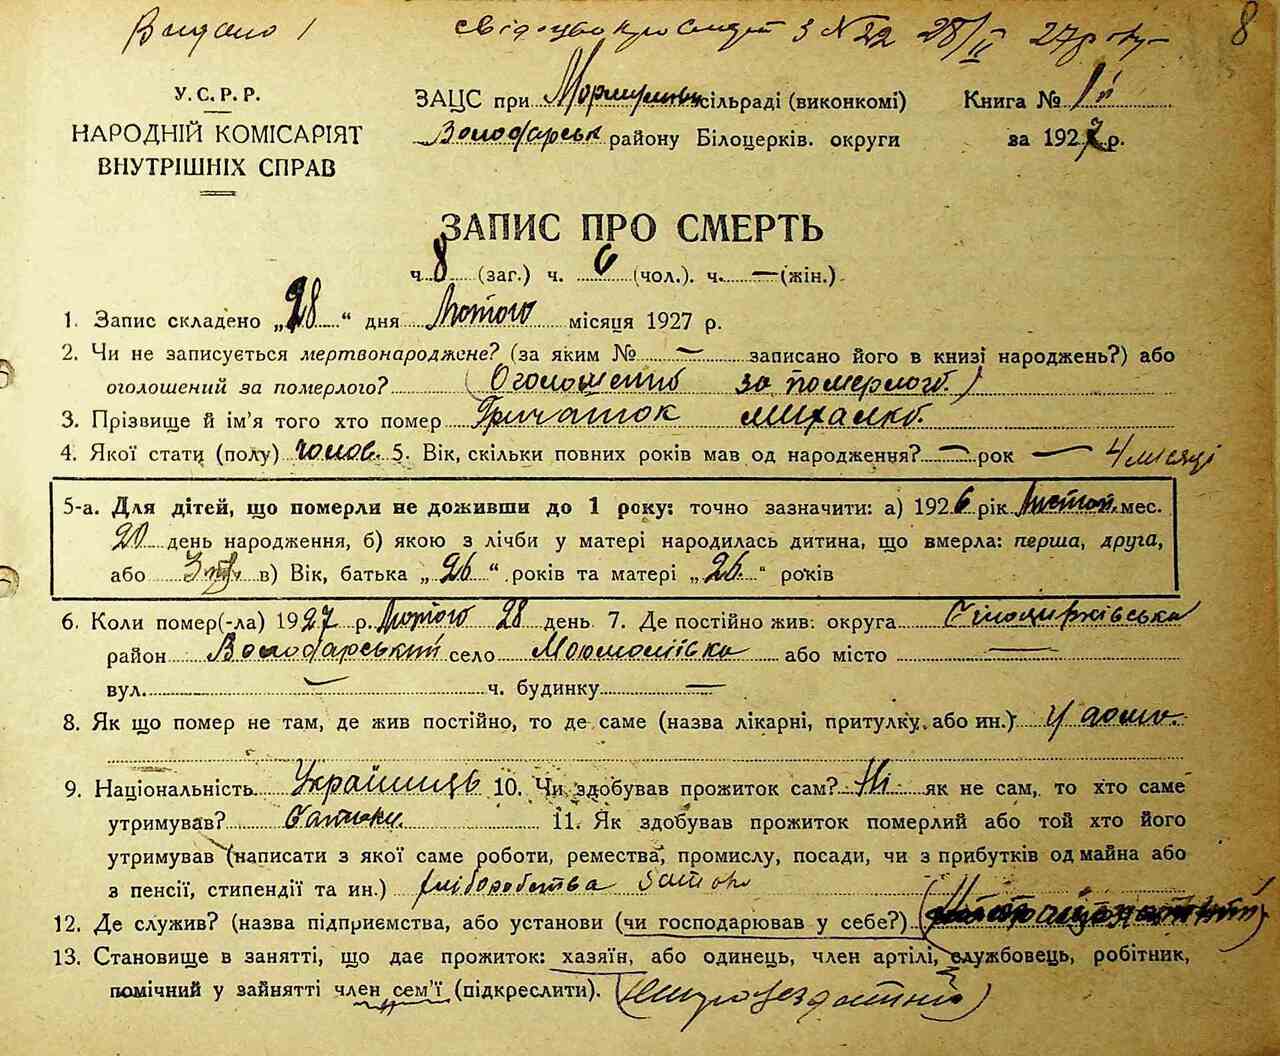 Видано 1 свідоцтво про смерть з № 22 28/II 27 року
8
У.С.Р.Р.
НАРОДНІЙ КОМІСАРІЯТ
ВНУТРІШНІХ СПРАВ
ЗАЦС при сільраді (виконкомі)
Володарськ району Білоцерків. округи
Книга №
за 1927 р.
ЗАПИС ПРО СМЕРТЬ
ч. 8 (заг.) ч. 6 (чол.). ч. — (жін.)
1. Запис складено „28“ дня Лютого місяця 1927 р.
2. Чи не записується мертвонароджене? (за яким № — записано його в книзі народжень?) або
оголошений за померлого? (Оголошений за померлого)
3. Прізвище й ім'я того хто помер Гричаток Михалко.
4. Якої статі (полу) чолов. 5. Вік, скільки повних років мав од народження? — рок — 4 місяці
5-а. Для дітей, що померли не доживши до 1 року: точно зазначити: а) 1926 рік Листоп. мес.
20 день народження, б) якою з лічби у матері народилась дитина, що вмерла: перша, друга,
або в) Вік, батька „26“ років та матері „26“ років
6. Коли помер(-ла) 1927 р. Лютого 28 день 7. Де постійно жив: округа Білоцирківська
район Володарський село або місто —
вул. — ч. будинку —
8. Як що помер не там, де жив постійно, то де саме (назва лікарні, притулку або ин.) У дома.
9. Національність Українець 10. Чи здобував прожиток сам? Ні як не сам, то хто саме
утримував? Батьки. 11. Як здобував прожиток померлий або той хто його
утримував (написати з якої саме роботи, ремества, промислу, посади, чи з прибутків од майна або
з пенсії, стипендії та ин.) хліборобства
12. Де служив? (назва підприємства, або установи (чи господарював у себе?)
13. Становище в занятті, що дає прожиток: хазяїн, або одинець, член артілі, службовець, робітник,
помічний у зайнятті член сем'ї (підкреслити). (непрацездатний)